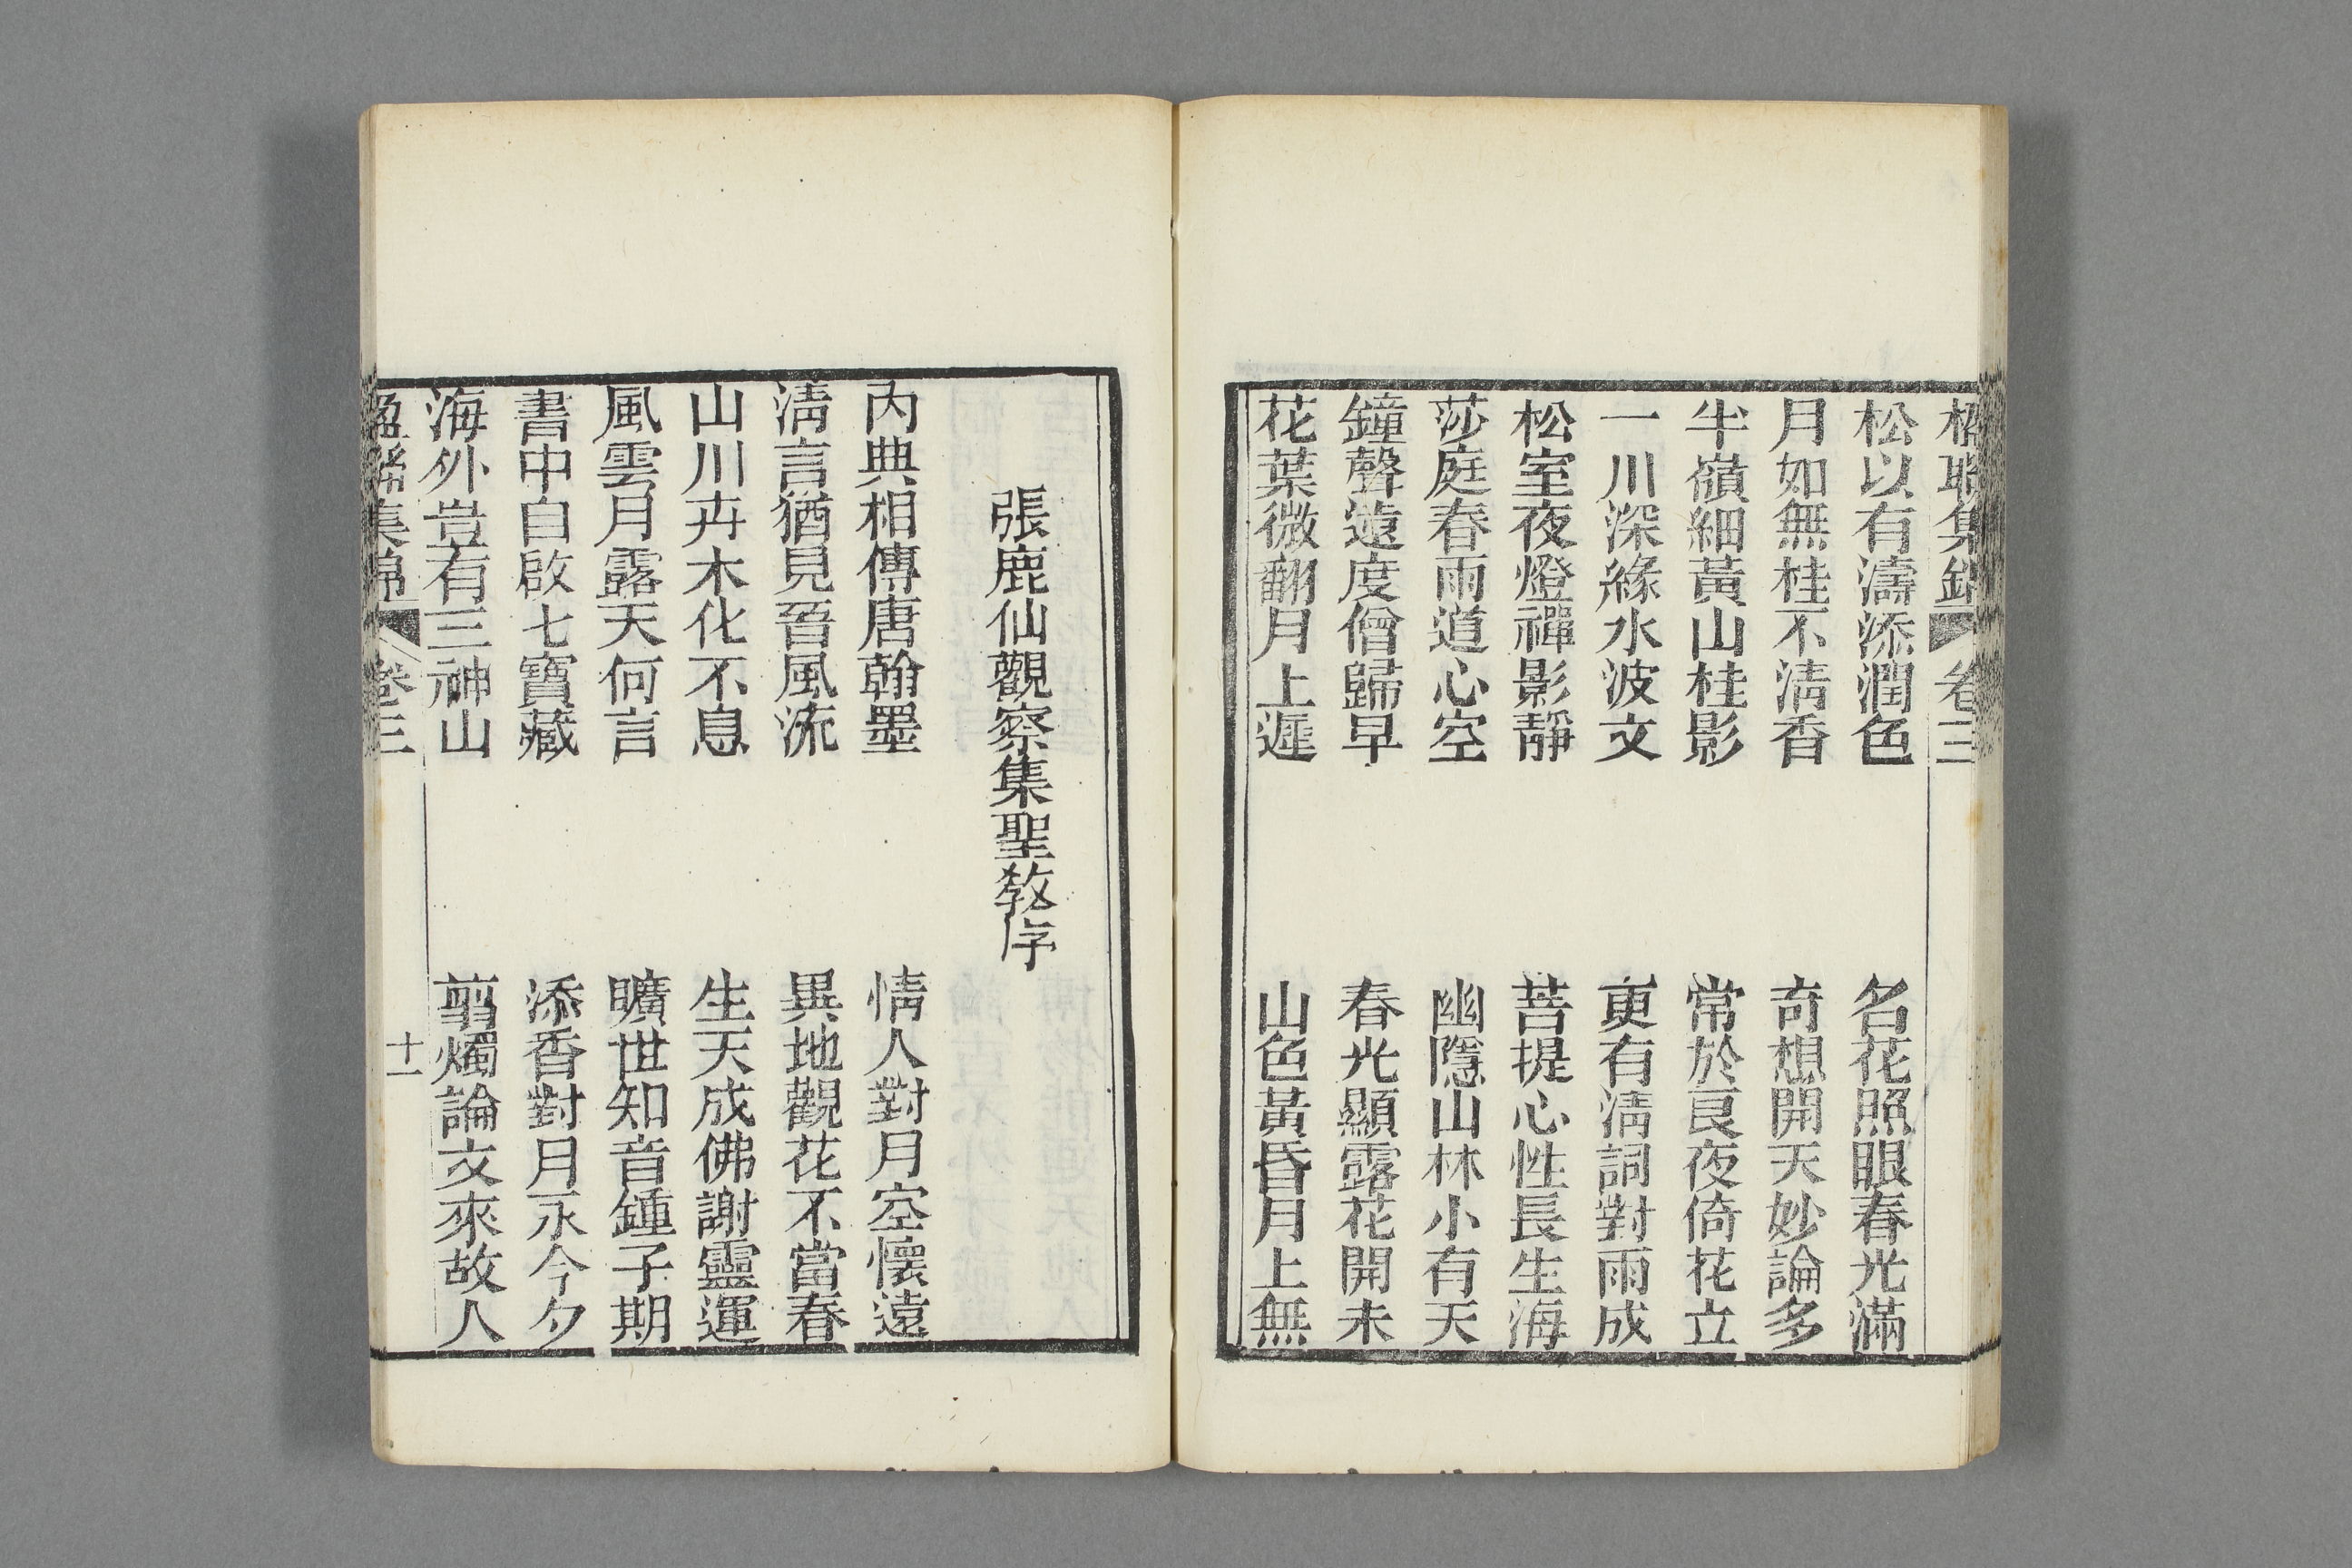 楹聯集錦 卷三
松以有濤添潤色 名花照眼春光滿
月如無桂不清香 奇想開天妙論多
半嶺細黃山桂影 常於良夜倚花立
一川深緣水波文 更有清詞對雨成
松室夜燈禪影靜 菩提心性長生海
莎庭春雨道心空 幽隱山林小有天
鐘聲遠度僧歸早 春光顯露花開未
花葉微翻月上遲 山色黃昏月上無
張鹿仙觀察集聖敎序
內典相傳唐翰墨 情人對月空懷遠
清言猶見晉風流 異地觀花不當春
山川卉木化不息 生天成佛謝靈運
風雲月露天何言 曠世知音鍾子期
書中自啟七寶藏 添香對月永今夕
海外豈有三神山 翦燭論文來故人
楹聯集錦 卷三 十一